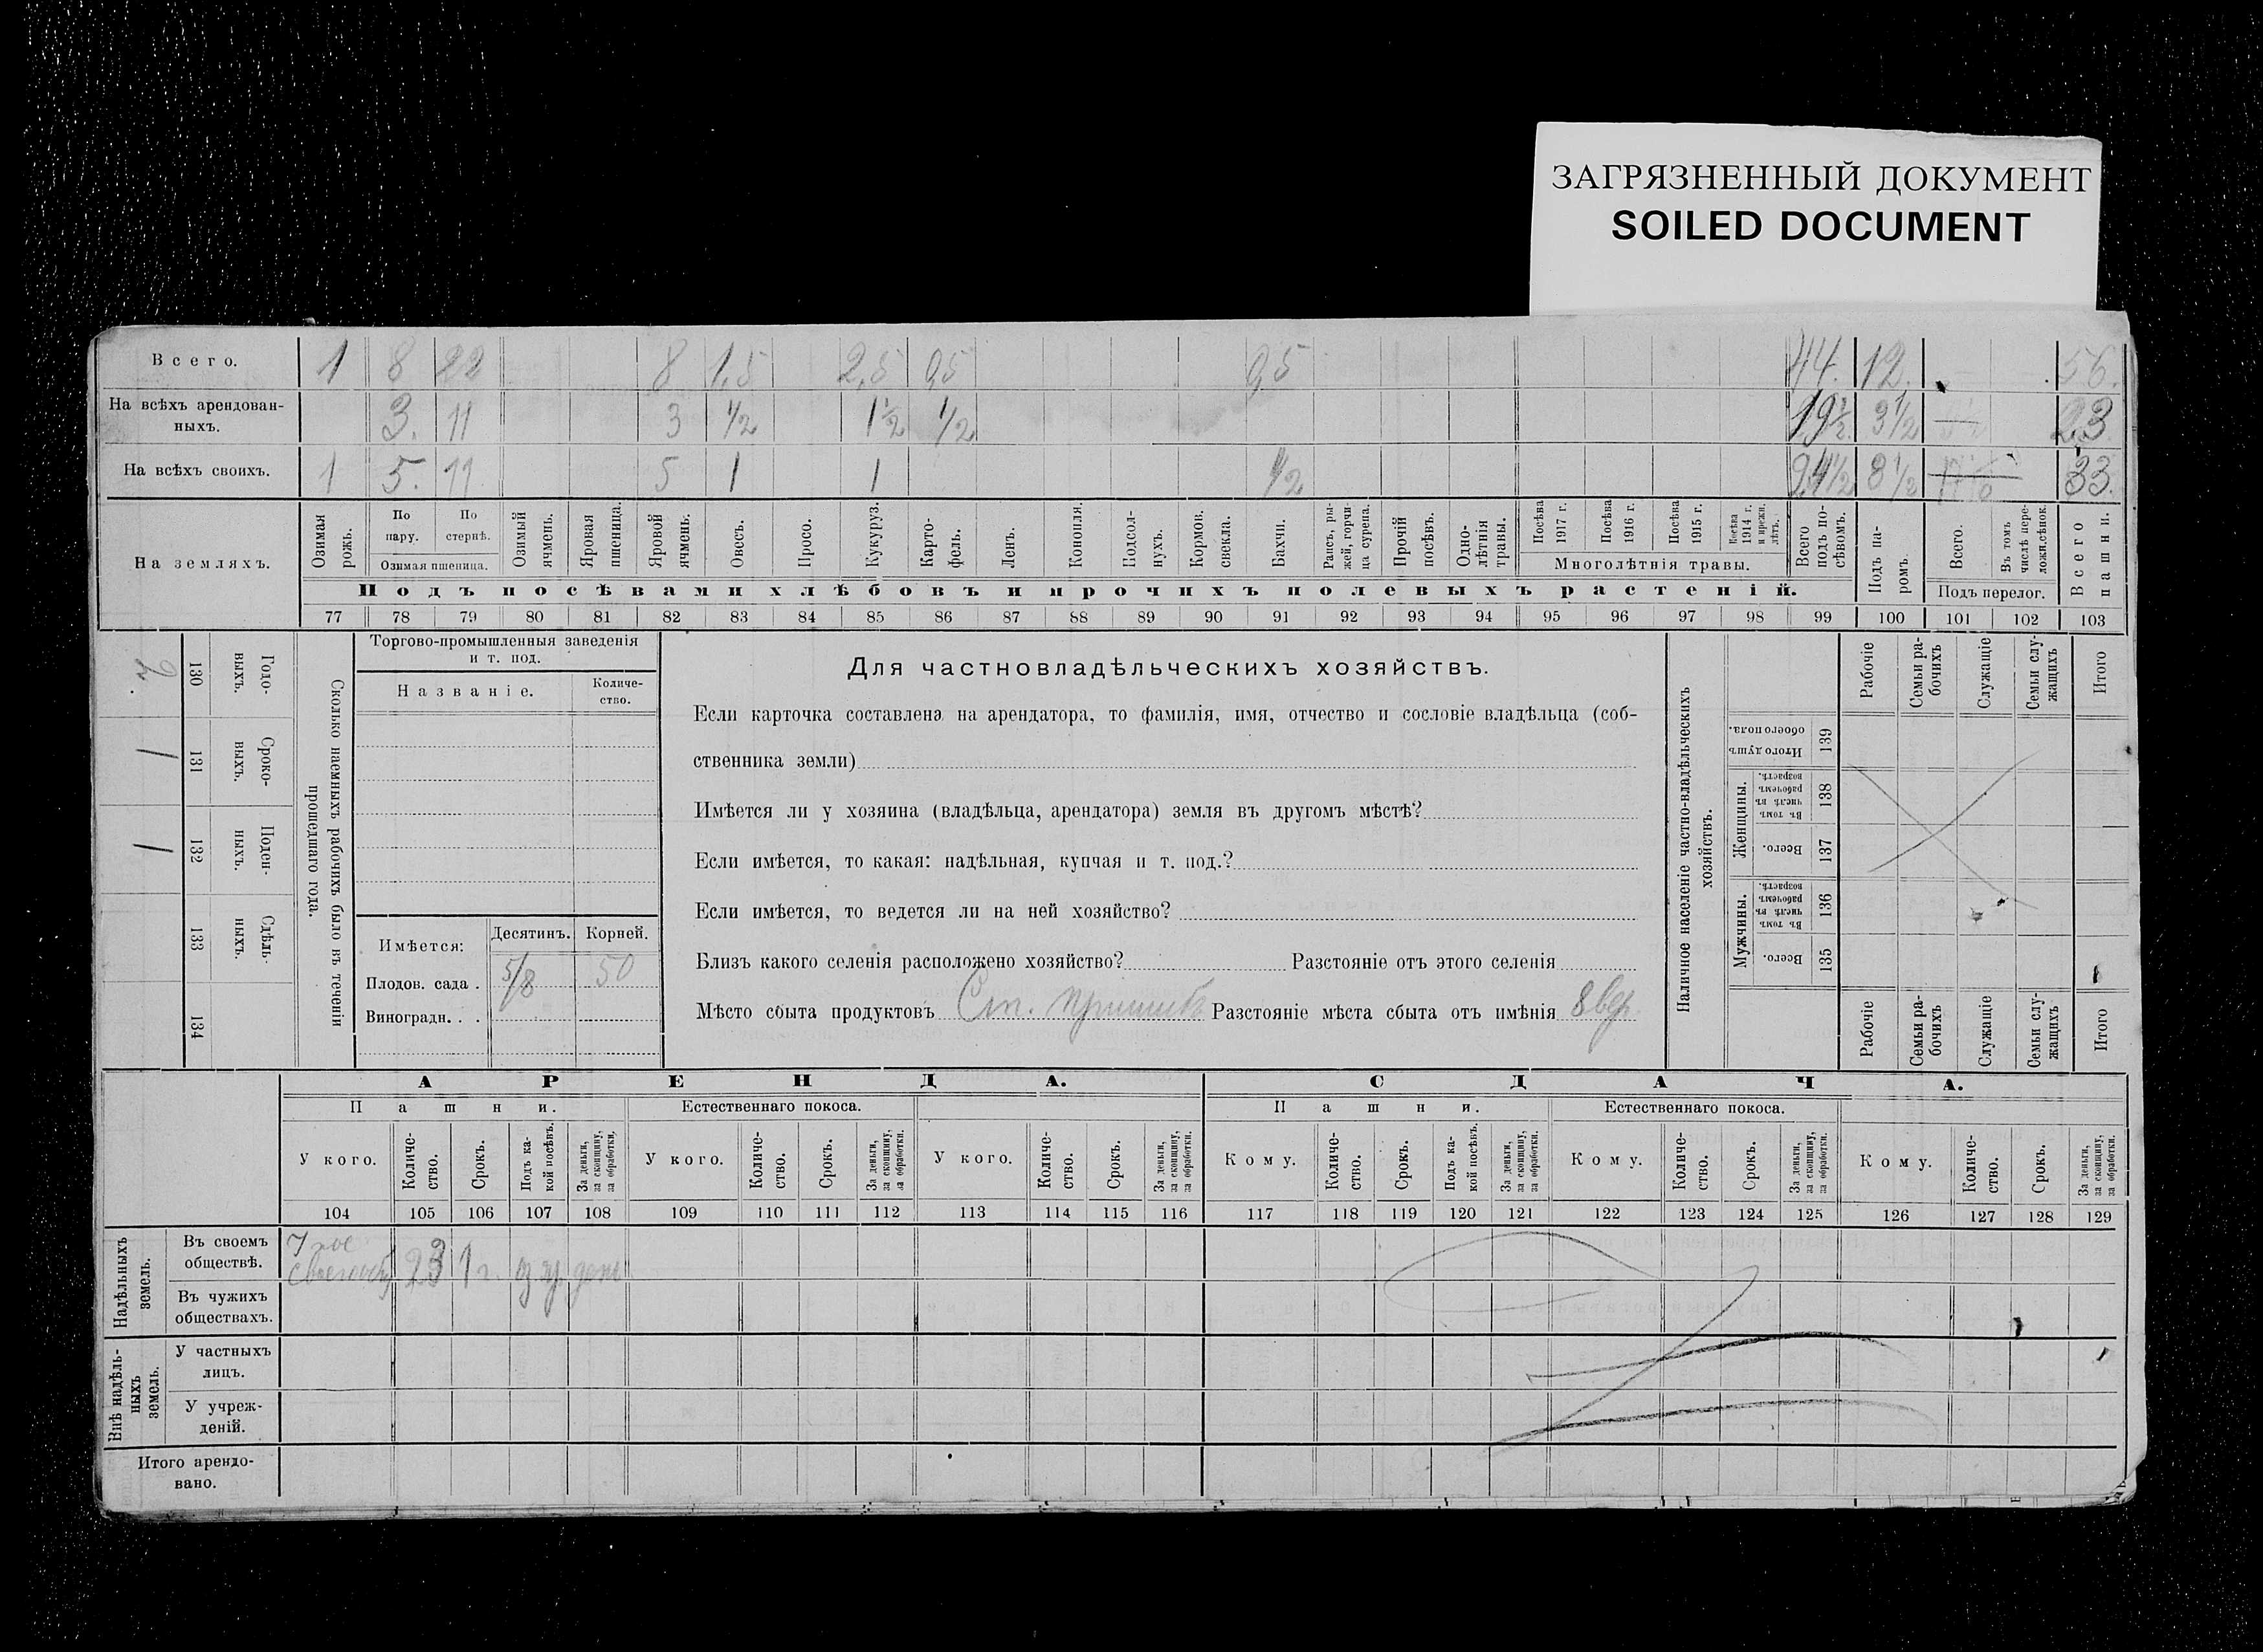 ЗАГРЯЗНЕННЫЙ ДОКУМЕНТ
SOILED DOCUMENT
Всего. 1 8 22 8 1,5 2,5 0,5 0,5 44. 12. 56.
На всѣхъ арендован-
ныхъ. 3. 11 3 1/2 1 1/2 1/2 19 1/2 3 1/2 — 23
На всѣхъ своихъ. 1 5. 11 5 1 1 1/2 24 1/2 8 1/2 33.
На земляхъ.
Озимая рожь.
По пару.
По стернѣ.
Озимая пшеница.
Озимый ячмень.
Яровая пшеница.
Яровой ячмень.
Овесъ.
Просо.
Кукуруз.
Карто-
фель.
Ленъ.
Конопля.
Подсол-
нухъ.
Кормов.
свекла.
Бахчи.
Рапсъ, ры-
жей, горчи-
ца сурепа.
Прочій
посѣвъ.
Одно-
лѣтнія
травы.
Посѣва
1917 г.
Посѣва
1916 г.
Посѣва
1915 г.
Посѣва
1914 г.
и прежн.
лѣтъ.
Многолѣтнія травы.
Всего
подъ по-
сѣвомъ.
Подъ па-
ромъ.
Всего.
Въ томъ
числѣ пере-
ложн.сѣнок.
Подъ перелог.
Всего
пашни.
Подъ посѣвами хлѣбовъ и прочихъ полевыхъ растеній.
77 78 79 80 81 82 83 84 85 86 87 88 89 90 91 92 93 94 95 96 97 98 99 100 101 102 103
130 Годо-
выхъ.
1 131 Сроко-
выхъ.
1 132 Поден-
ныхъ.
133 Сдѣль-
ныхъ.
134
Сколько наемныхъ рабочихъ было въ теченіи
прошедшаго года.
Торгово-промышленныя заведенія
и т. под.
Названіе.
Количе-
ство.
Имѣется:
Десятинъ. Корней.
Плодов. сада . 5/8 50
Виноградн. . .
Для частновладѣльческихъ хозяйствъ.
Если карточка составлена на арендатора, то фамилія, имя, отчество и сословіе владѣльца (соб-
ственника земли)
Имѣется ли у хозяина (владѣльца, арендатора) земля въ другомъ мѣстѣ?
Если имѣется, то какая: надѣльная, купчая и т. под.?
Если имѣется, то ведется ли на ней хозяйство?
Близъ какого селенія расположено хозяйство? Разстояніе отъ этого селенія
Мѣсто сбыта продуктовъ Ст. Пришибъ Разстояніе мѣста сбыта отъ имѣнія 8 вер.
Наличное населеніе частно-владѣльческихъ
хозяйствъ.
Рабочіе
Семьи ра-
бочихъ
Служащіе
Семьи слу-
жащихъ
Итого
Итого душъ
обоего пола. 139
Женщины.
Въ томъ
числѣ въ
рабочемъ
возрастѣ. 138
Всего. 137
Мужчины.
Въ томъ
числѣ въ
рабочемъ
возрастѣ. 136
Всего. 135
Рабочіе
Семьи ра-
бочихъ
Служащіе
Семьи слу-
жащихъ
Итого
АРЕНДА. СДАЧА.
Пашни. Естественнаго покоса. Пашни. Естественнаго покоса.
У кого.
Количе-
ство.
Срокъ.
Подъ ка-
кой посѣвъ.
За деньги,
за скопщину,
за обработки.
У кого.
Количе-
ство.
Срокъ.
За деньги,
за скопщину,
за обработки.
У кого.
Количе-
ство.
Срокъ.
За деньги,
за скопщину,
за обработки.
Кому.
Количе-
ство.
Срокъ.
Подъ ка-
кой посѣвъ.
За деньги,
за скопщину,
за обработки.
Кому.
Количе-
ство.
Срокъ.
За деньги,
за скопщину,
за обработки.
Кому.
Количе-
ство.
Срокъ.
За деньги,
за скопщину,
за обработки.
104 105 106 107 108 109 110 111 112 113 114 115 116 117 118 119 120 121 122 123 124 125 126 127 128 129
Надѣльныхъ
земель.
Въ своемъ
обществѣ. 23 1 г.
Въ чужихъ
обществахъ.
Внѣ надѣль-
ныхъ
земель.
У частныхъ
лицъ.
У учреж-
деній.
Итого арендо-
вано.